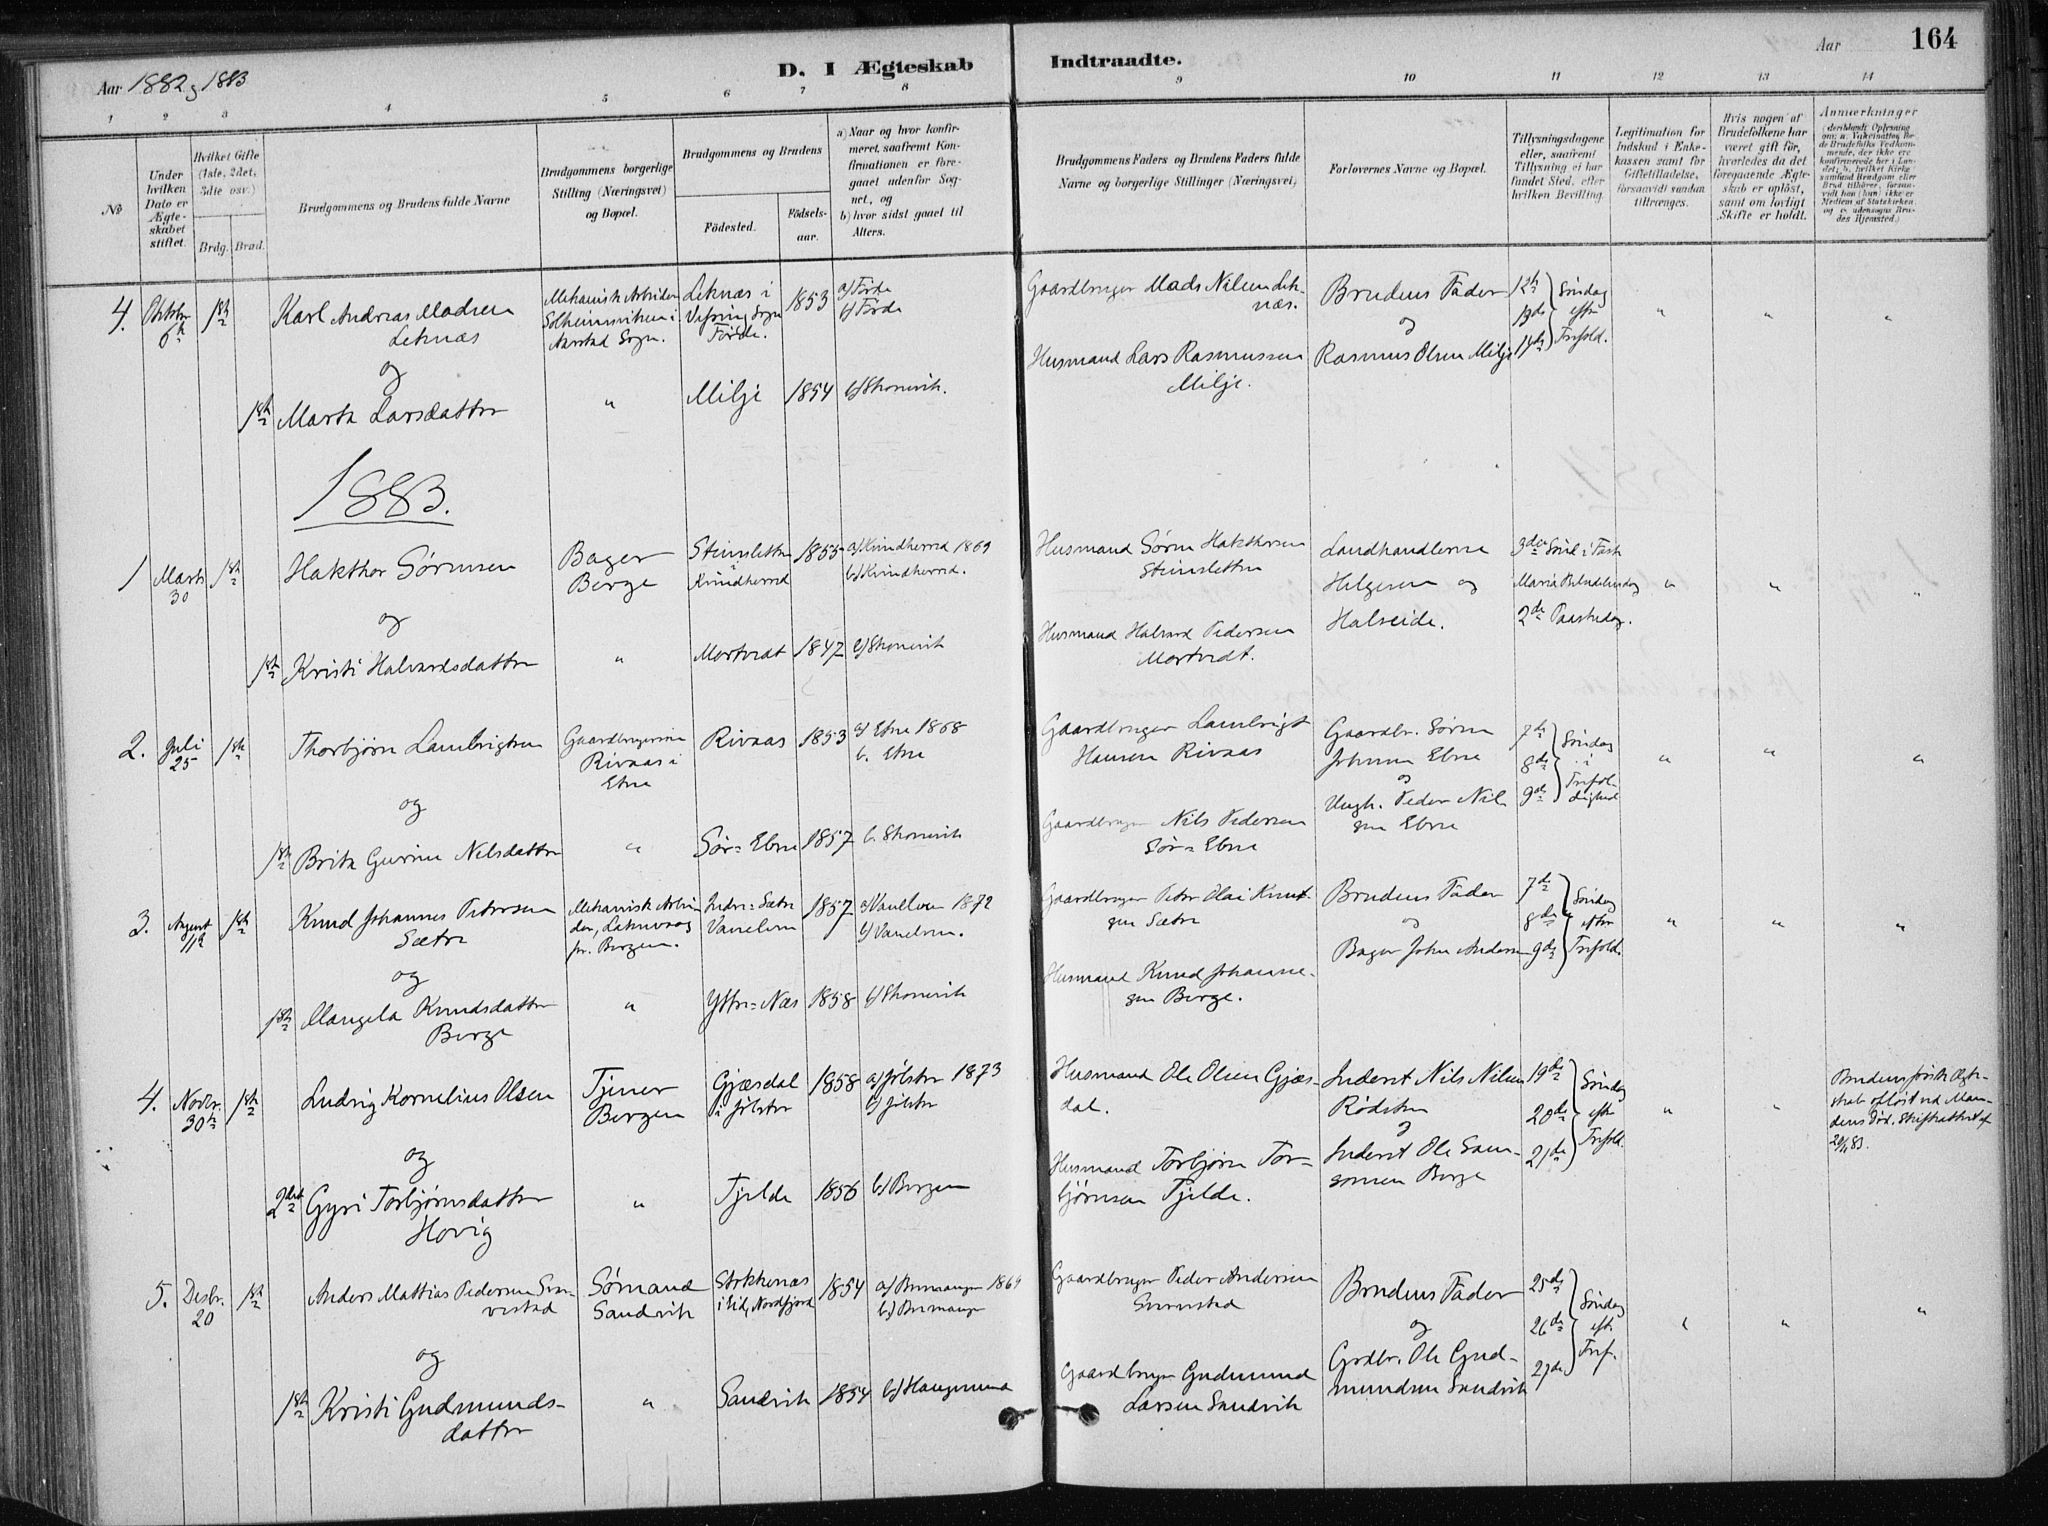 Aar 1882 og 1883
D. I Ægteskab
Indtraadte.
Aar
164
1 2 3 4 5 6 7 8 9 10 11 12 13 14
No
Under hvilken Dato er Ægteskabet stiftet.
Hvilket Gifte (1ste, 2det, 3dte osv.)
Brdg. Brud.
Brudgommens og Brudens fulde Navne
Brudgommens borgerlige Stilling (Næringsvei) og Bopæl.
Brudgommens og Brudens
Födested.
Födselsaar.
a) Naar og hvor konfirmeret, saafremt Konfirmationen er foregaaet udenfor Sognet, og
b) hvor sidst gaaet til Alters.
Brudgommens Faders og Brudens Faders fulde Navne og borgerlige Stillinger (Næringsvei)
Forlovernes Navne og Bopæl.
Tillysningsdagene eller, saafremt Tillysning ei har fundet Sted, efter hvilken Bevilling.
Legitimation for Indskud i Enkekassen samt for Giftetilladelse, forsaavidt saadan tiltrænges.
Hvis nogen af Brudefolkene har været gift för, hvorledes da det foregaaende Ægteskab er oplöst, samt om lovligt Skifte er holdt.
Anmærkninger
4. Oktobr 6te 1ste
Karl Andreas Madsen
Leknæs
Mekanisk Arbeider
Solheimsviken i
Aarstad Sogn.
Leknæs i
Vefring Sogn
Förde.
1853
a) Förde
b) Förde
Gaardbruger Mads Nilsen Leknæs.
Brudens Fader
og
12te
13de
14de
Söndag
efter
Trefold.
og
1ste Marta Larsdatter
"
Milje
1854
b) Skonevik.
Husmand Lars Rasmussen
Milje.
Rasmus Olsen Milje
1883.
1 Marts 30 1ste
Hakthor Sørensen
Bager
Berge
Steinsletten
i
Kvindherred
1855
a) Kvindherred 1869
b) Kvindherred.
Husmand Sørn Hakthorsen
Steinsletten
Landhandlerne
Helgesen og
Halseide.
3die Sönd. i Faste
Maria Bebudelsesdag
2de Paaskedag.
og
1ste Kristi Halvardsdatter
"
Mortvedt
1847
b) Skonevik
Husmand Halvard Pedersen
Mortvedt.
2. Juli 25 1ste
Thorbjørn Lambrigtsen
Gaardbrugersøn
Rivaas i
Etne
Rivaas
1853
a) Etne 1868
b. Etne
Gaardbruger Lambrigt
Hansen Rivaas
Gaardbr. Sørn
Johnsen Ebne
og
Ungk. Peder Nilsen Ebne
7de
8de
9de
Söndag
i
Trefoldighed
og
1ste Brita Gurine Nilsdatter
"
Sør-Ebne
1857
b. Skonevik
Gaardbruger Nils Pedersen
Sør-Ebne
3. August 11te 1ste
Knud Johannes Petersen
Sætre
Mekanisk Arbeider, Laksevaag
pr. Bergen.
Indre-Sætre
Vanelven
1857
a) Vanelven 1872
b) Vanelven.
Gaardbruger Peter Olai Knutsen Sætre
Brudens Fader
og
Bager John Andersen
7de
8de
9de
Söndag
efter
Trefold.
og
1ste Mangela Knudsdatter
Berge
"
Ytre-Næs
1858
b) Skonevik
Husmand Knud Johannesen Berge.
4. Novbr. 30te 1ste
Ludvig Kornelius Olsen
Tjener
Bergen
Gjæsdal
i Jølster
1858
a) Jølster 1873
b) Jølster
Husmand Ole Olsen Gjæsdal.
Inderst Nils Nilsen
Rødsten
og
19de
20de
21de
Söndag
efter
Trefold.
Brudens første Ægteskab opløst ved Mandens Død. Skifteattest af
20/11 83.
og
2det Gyri Torbjørnsdatter
Hovig
"
Tjelde
1856
b) Bergen
Husmand Torbjørn Torbjørnsen Tjelde.
Inderst Ole Samsonsen Berge
5. Desbr. 20 1ste
Anders Mattias Pedersen
Sømand
Sandvik
Stokkenæs
i Eid, Nordfjord
1854
a) Bremanger 1869
b) Bremanger
Gaardbruger Peder Andersen
Brudens Fader
og
25de
26de
27de
Söndag
eft.
Tref.
og
1ste Kristi Gudmundsdatter
"
Sandvik
1854
b) Haugesund
Gaardbruger Gudmund
Larsen Sandvik
Grdbr. Ole Gudmundsen Sandvik